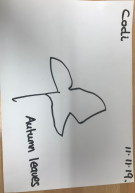 Codi
11.11.19.
Autumn leaves